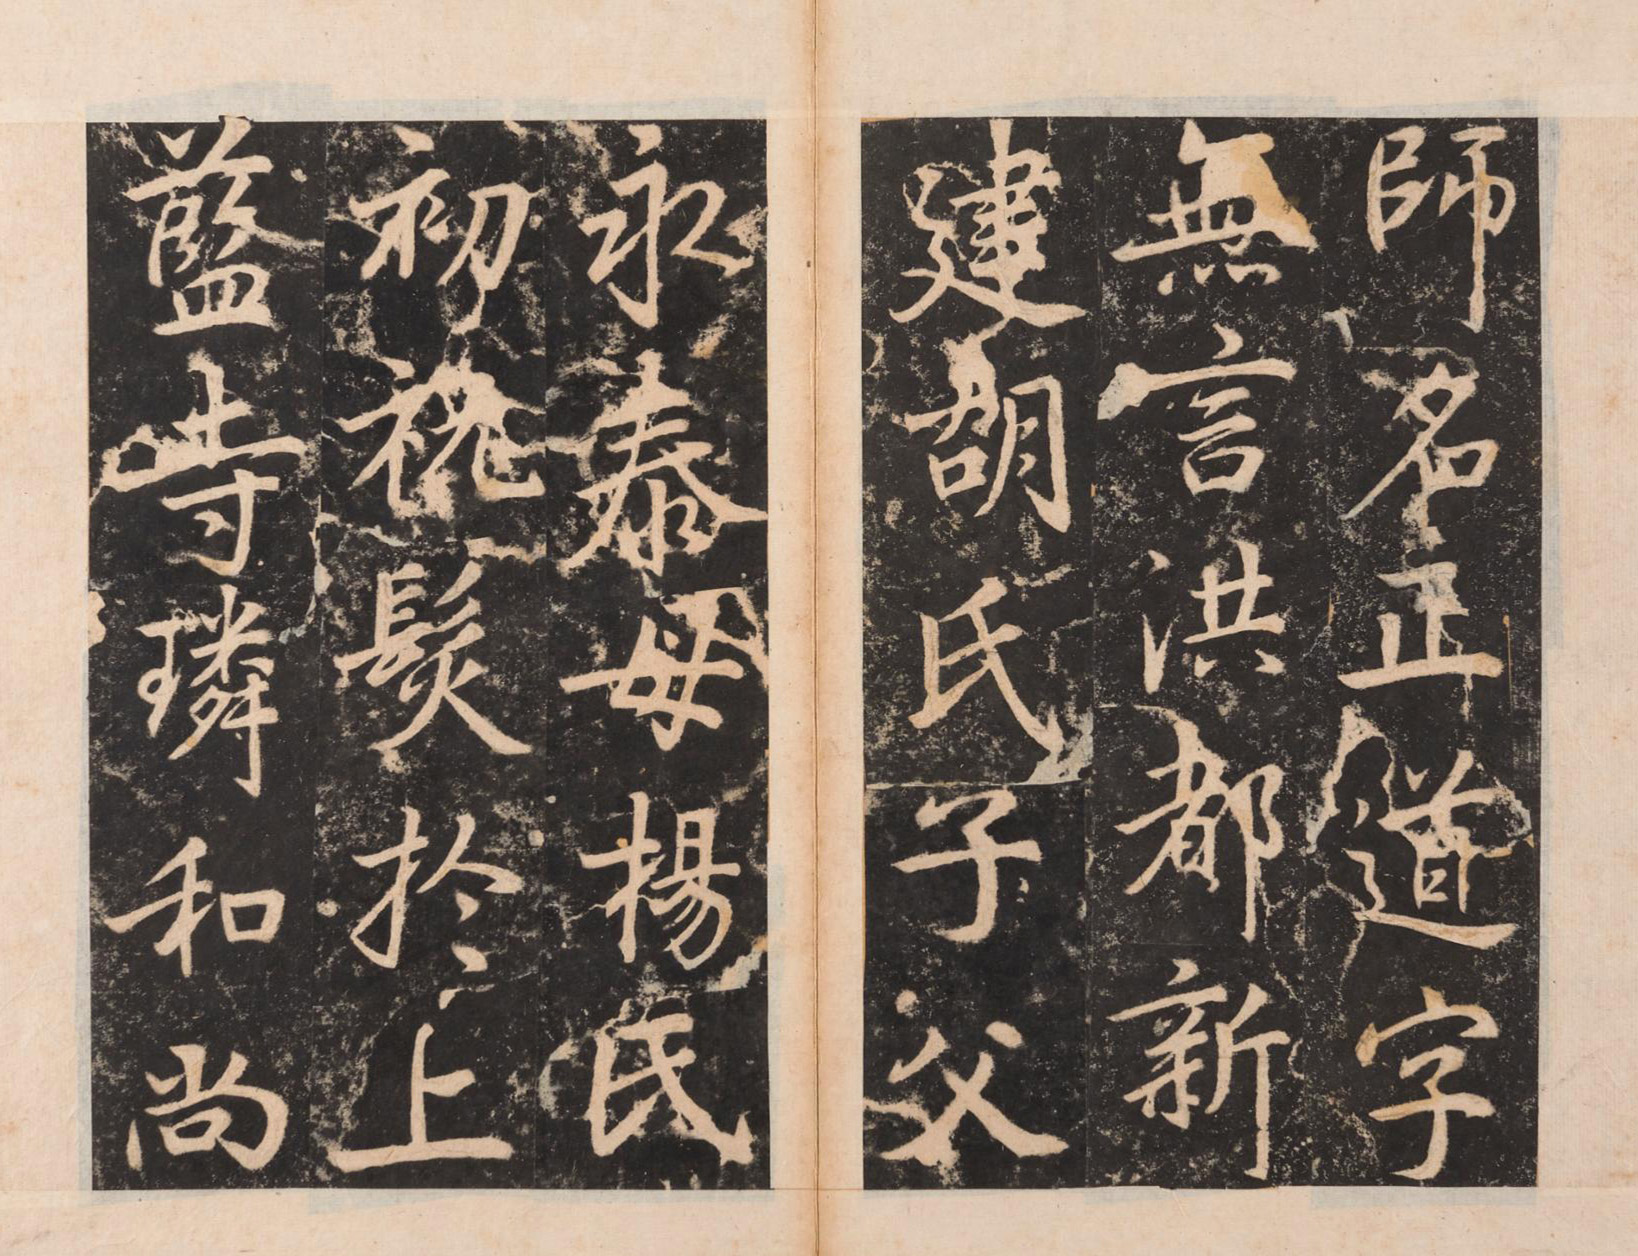 師名正道字
無言洪都新
建胡氏子父
永泰母楊氏
初祝髮於上
藍寺璘和尚